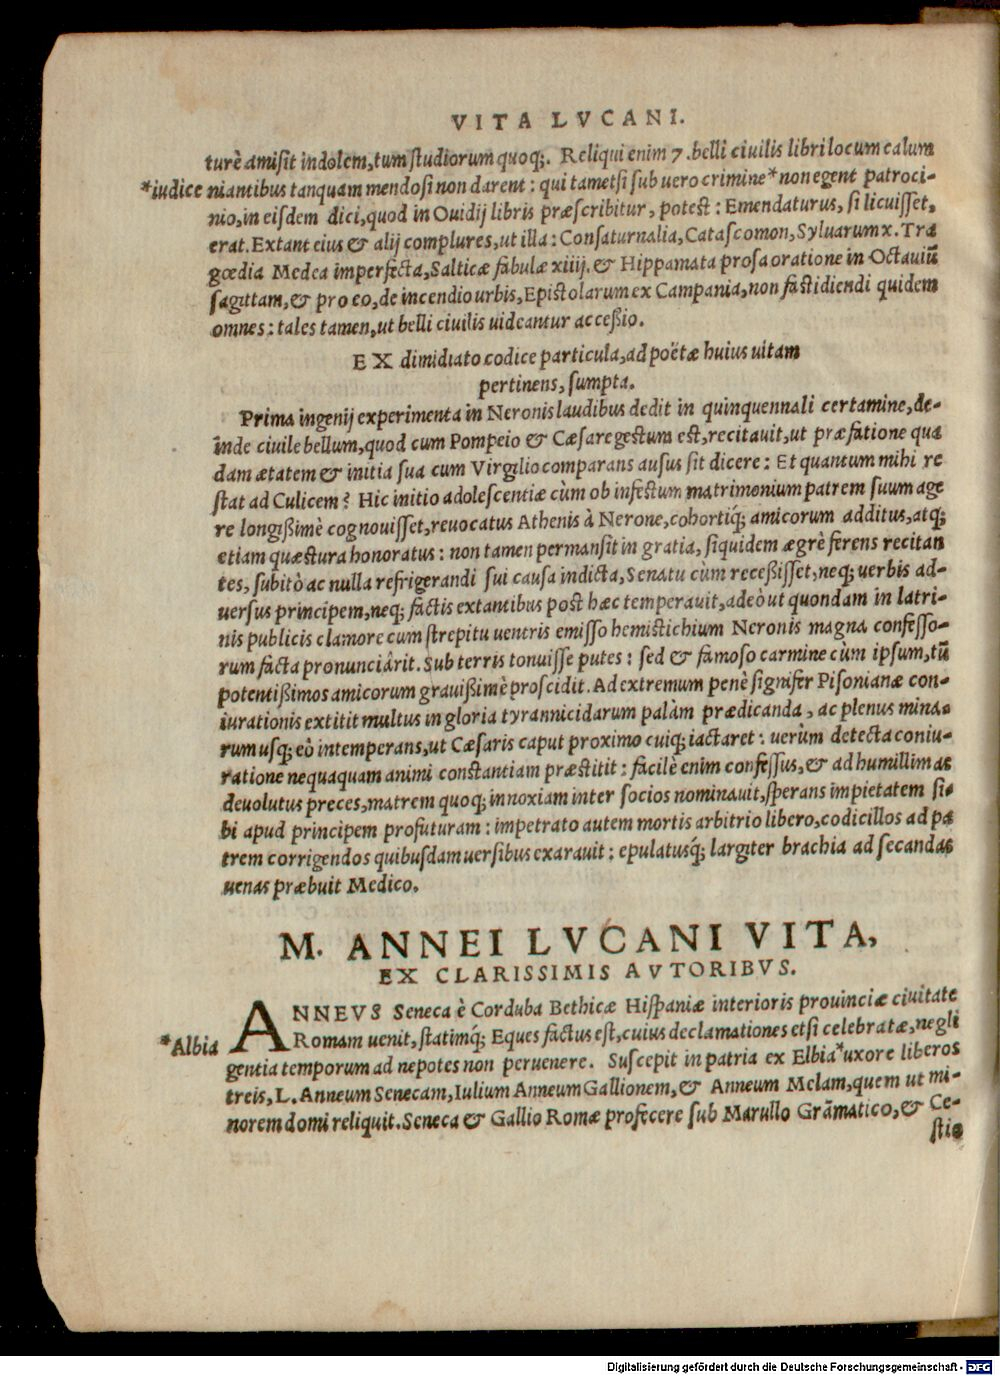 VITA LVCANI.
turè amisit indolem, tum studiorum quoq;. Reliqui enim 7. belli ciuilis libri locum calum
*iudice niantibus tanquam mendosi non darent: qui tametsi sub uero crimine* non egent patroci-
nio, in eisdem dici, quod in Ouidij libris præscribitur, potest: Emendaturus, si licuisset,
erat. Extant eius & alij complures, ut illa: Consaturnalia, Catascomon, Syluarum x. Tra
gœdia Medea imperfecta, Salticæ fabulæ xiiij. & Hippamata prosa oratione in Octauiū
sagittam, & pro eo, de incendio urbis, Epistolarum ex Campania, non fastidiendi quidem
omnes: tales tamen, ut belli ciuilis uideantur accessio.
EX dimidiato codice particula, ad poëtæ huius uitam
pertinens, sumpta.
Prima ingenij experimenta in Neronis laudibus dedit in quinquennali certamine, de-
inde ciuile bellum, quod cum Pompeio & Cæsare gestum est, recitauit, ut præfatione qua
dam ætatem & initia sua cum Virgilio comparans ausus sit dicere: Et quantum mihi re
stat ad Culicem? Hic initio adolescentiæ cùm ob infestum matrimonium patrem suum age
re longissimè cognouisset, reuocatus Athenis à Nerone, cohortiq́; amicorum additus, atq;
etiam quæstura honoratus: non tamen permansit in gratia, siquidem ægrè ferens recitan
tes, subitò ac nulla refrigerandi sui causa indicta, Senatu cùm recessisset, neq; uerbis ad-
uersus principem, neq; factis extantibus post hæc temperauit, adeò ut quondam in latri-
nis publicis clamore cum strepitu uentris emisso hemistichium Neronis magna confesso-
rum facta pronunciârit. Sub terris tonuisse putes: sed & famoso carmine cùm ipsum, tū
potentissimos amicorum grauissimè proscidit. Ad extremum penè signifer Pisonianæ con-
iurationis extitit multus in gloria tyrannicidarum palàm prædicanda, ac plenus mina-
rum usq; eò intemperans, ut Cæsaris caput proximo cuiq; iactaret: uerùm detecta coniu-
ratione nequaquam animi constantiam præstitit: facilè enim confessus, & ad humillimas
deuolutus preces, matrem quoq; innoxiam inter socios nominauit, sperans impietatem si-
bi apud principem profuturam: impetrato autem mortis arbitrio libero, codicillos ad pa
trem corrigendos quibusdam uersibus exarauit: epulatusq́; largiter brachia ad secandas
uenas præbuit Medico.
M. ANNEI LVCANI VITA,
EX CLARISSIMIS AVTORIBVS.
ANNEVS Seneca è Corduba Bethicæ Hispaniæ interioris prouinciæ ciuitate
Romam uenit, statimq́; Eques factus est, cuius declamationes etsi celebratæ, negli
*Albia gentia temporum ad nepotes non peruenere. Suscepit in patria ex Elbia* uxore liberos
treis, L. Anneum Senecam, Iulium Anneum Gallionem, & Anneum Melam, quem ut mi-
norem domi reliquit. Seneca & Gallio Romæ profecere sub Marullo Grāmatico, & Ce-
stio
Digitalisierung gefördert durch die Deutsche Forschungsgemeinschaft - DFG